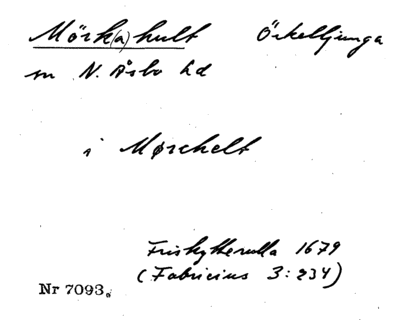 Mörk(a)hult Örkelljunga
sn N. Åsbo hd
i Mørchelt
Friskytterulla 1679
(Fabricius 3:234)
Nr 7093.